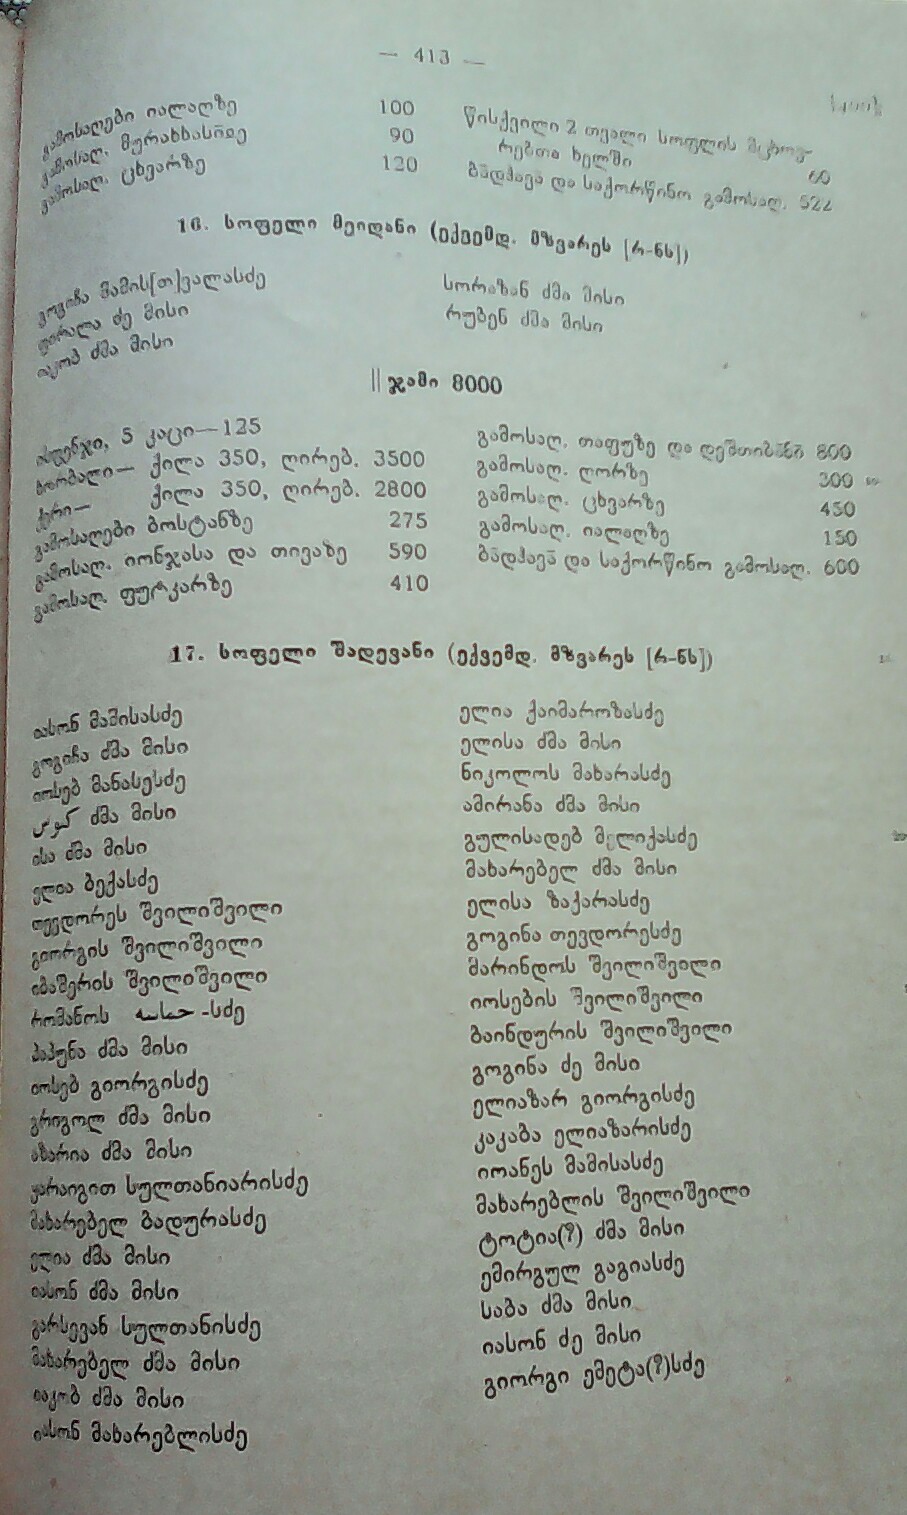 — 413 —
გამოსაღები იალაღზე 100
გამოსაღ. მურახხასიდე 90
გამოსაღ. ცხვარზე 120
წისქვილი 2 თვალი სოფლის მცხოვ-
რებთა ხელში 60
ბადჰავა და საქორწინო გამოსაღ. 522
16. სოფელი მეიდანი (ექვემდ. მზვარეს [რ-ნს])
გოგიჩა მამის[თ]ვალასძე
ფირალა ძე მისი
იაკობ ძმა მისი
სორაზან ძმა მისი
რუბენ ძმა მისი
|| ჯამი 8000
ისფენჯი, 5 კაცი—125
ხორბალი— ქილა 350, ღირებ. 3500
ქერი— ქილა 350, ღირებ. 2800
გამოსაღები ბოსტანზე 275
გამოსაღ. იონჯასა და თივაზე 590
გამოსაღ. ფუტკარზე 410
გამოსაღ. თაფუზე და დეშთიბანა 800
გამოსაღ. ღორზე 300
გამოსაღ. ცხვარზე 450
გამოსაღ. იალაღზე 150
ბადჰავა და საქორწინო გამოსაღ. 600
17. სოფელი შადევანი (ექვემდ. მზვარეს [რ-ნს])
იასონ მამისასძე
გოგიჩა ძმა მისი
იოსებ მანასესძე
كوس ძმა მისი
ისა ძმა მისი
ელია ბექასძე
თევდორეს შვილიშვილი
გიორგის შვილიშვილი
იმაშერის შვილიშვილი
რომანოს -სძე
პაპუნა ძმა მისი
იოსებ გიორგისძე
გრიგოლ ძმა მისი
აზარია ძმა მისი
ყარაიგით სულთანიარისძე
მახარებელ ბადურასძე
ელია ძმა მისი
იასონ ძმა მისი
გარსევან სულთანისძე
მახარებელ ძმა მისი
იაკობ ძმა მისი
იასონ მახარებლისძე
ელია ქაიმაროზასძე
ელისა ძმა მისი
ნიკოლოს მახარასძე
ამირანა ძმა მისი
გულისადებ მელიქასძე
მახარებელ ძმა მისი
ელისა ზაქარასძე
გოგინა თევდორესძე
მარინდოს შვილიშვილი
იოსების შვილიშვილი
ბაინდურის შვილიშვილი
გოგინა ძე მისი
ელიაზარ გიორგისძე
კაკაბა ელიაზარისძე
იოანეს მამისასძე
მახარებლის შვილიშვილი
ტოტია(?) ძმა მისი
ემირგულ გაგიასძე
საბა ძმა მისი
იასონ ძე მისი
გიორგი ემეტა(?)სძე